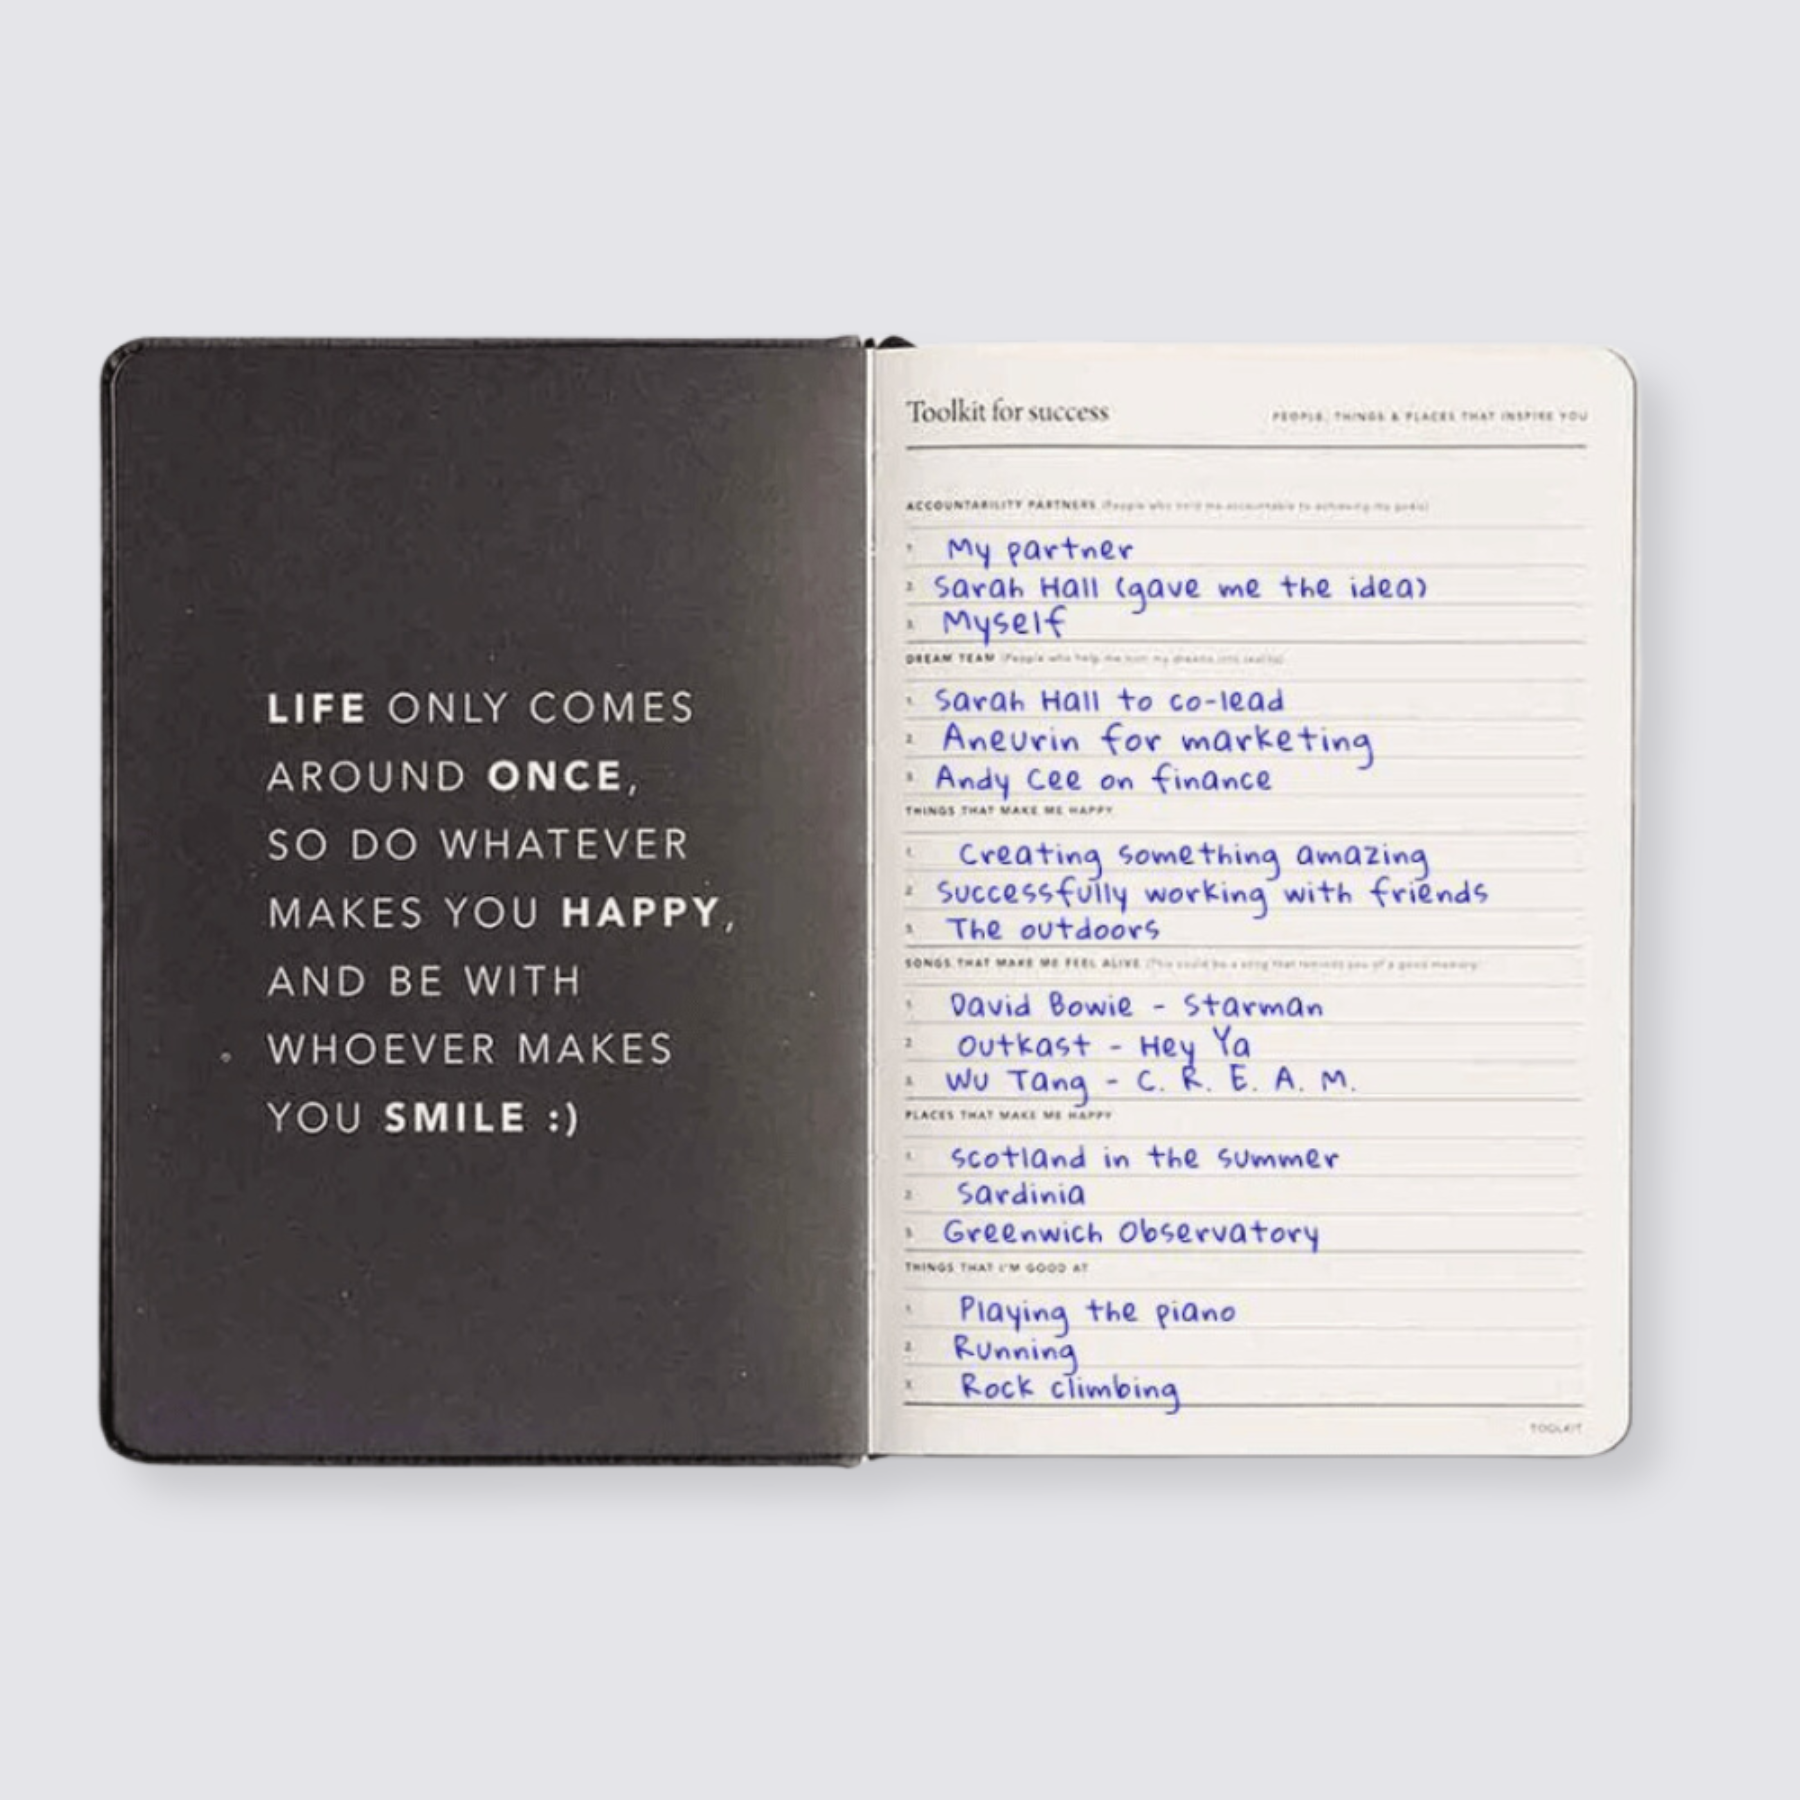 LIFE ONLY COMES
AROUND ONCE,
SO DO WHATEVER
MAKES YOU HAPPY,
AND BE WITH
WHOEVER MAKES
YOU SMILE :)
Toolkit for success PEOPLE, THINGS & PLACES THAT INSPIRE YOU
ACCOUNTABILITY PARTNERS (People who hold me accountable to achieving my goals)
1. My partner
2. Sarah Hall (gave me the idea)
3. Myself
DREAM TEAM (People who help me turn my dreams into reality)
1. Sarah Hall to co-lead
2. Aneurin for marketing
3. Andy Cee on finance
THINGS THAT MAKE ME HAPPY
1. Creating something amazing
2. Successfully working with friends
3. The outdoors
SONGS THAT MAKE ME FEEL ALIVE (This could be a song that reminds you of a good memory)
1. David Bowie - Starman
2. Outkast - Hey Ya
3. Wu Tang - C. R. E. A. M.
PLACES THAT MAKE ME HAPPY
1. Scotland in the summer
2. Sardinia
3. Greenwich Observatory
THINGS THAT I'M GOOD AT
1. Playing the piano
2. Running
3. Rock climbing
TOOLKIT